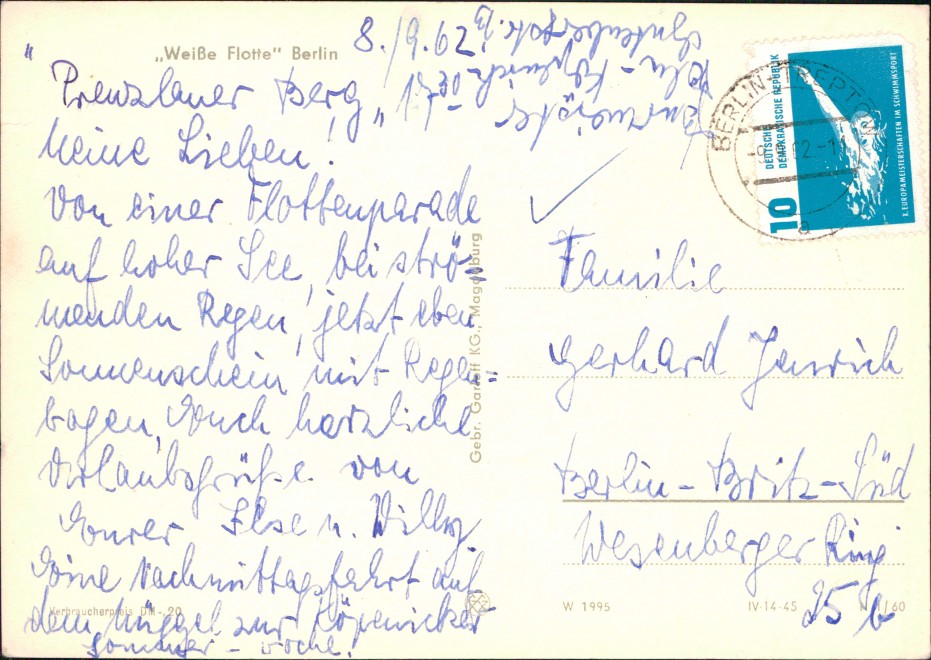 „Weiße Flotte" Berlin
"Prenzlauer Berg" 17⁰⁰
8./9.62
Meine Lieben!
Von einer Flottenparade
auf hoher See, bei strö-
menden Regen, jetzt eben
Sonnenschein mit Regen=
bogen, Euch herzliche
Urlaubsgrüße von
Eurer Else u. Willy.
Eine Nachmittagsfahrt auf
dem Müggel zur Köpenicker
Sommer-woche!
Verbraucherpreis DM -,20
Bln-Köpenick
Gebr. Garloff KG., Magdeburg
DEUTSCHE
DEMOKRATISCHE REPUBLIK
10
X. EUROPAMEISTERSCHAFTEN IM SCHWIMMSPORT
BERLIN-TREPTOW
a
Familie
Gerhard Jenrich
Berlin-Britz-Süd
Wesenberger Ring
25 b
W 1995
IV-14-45
/60